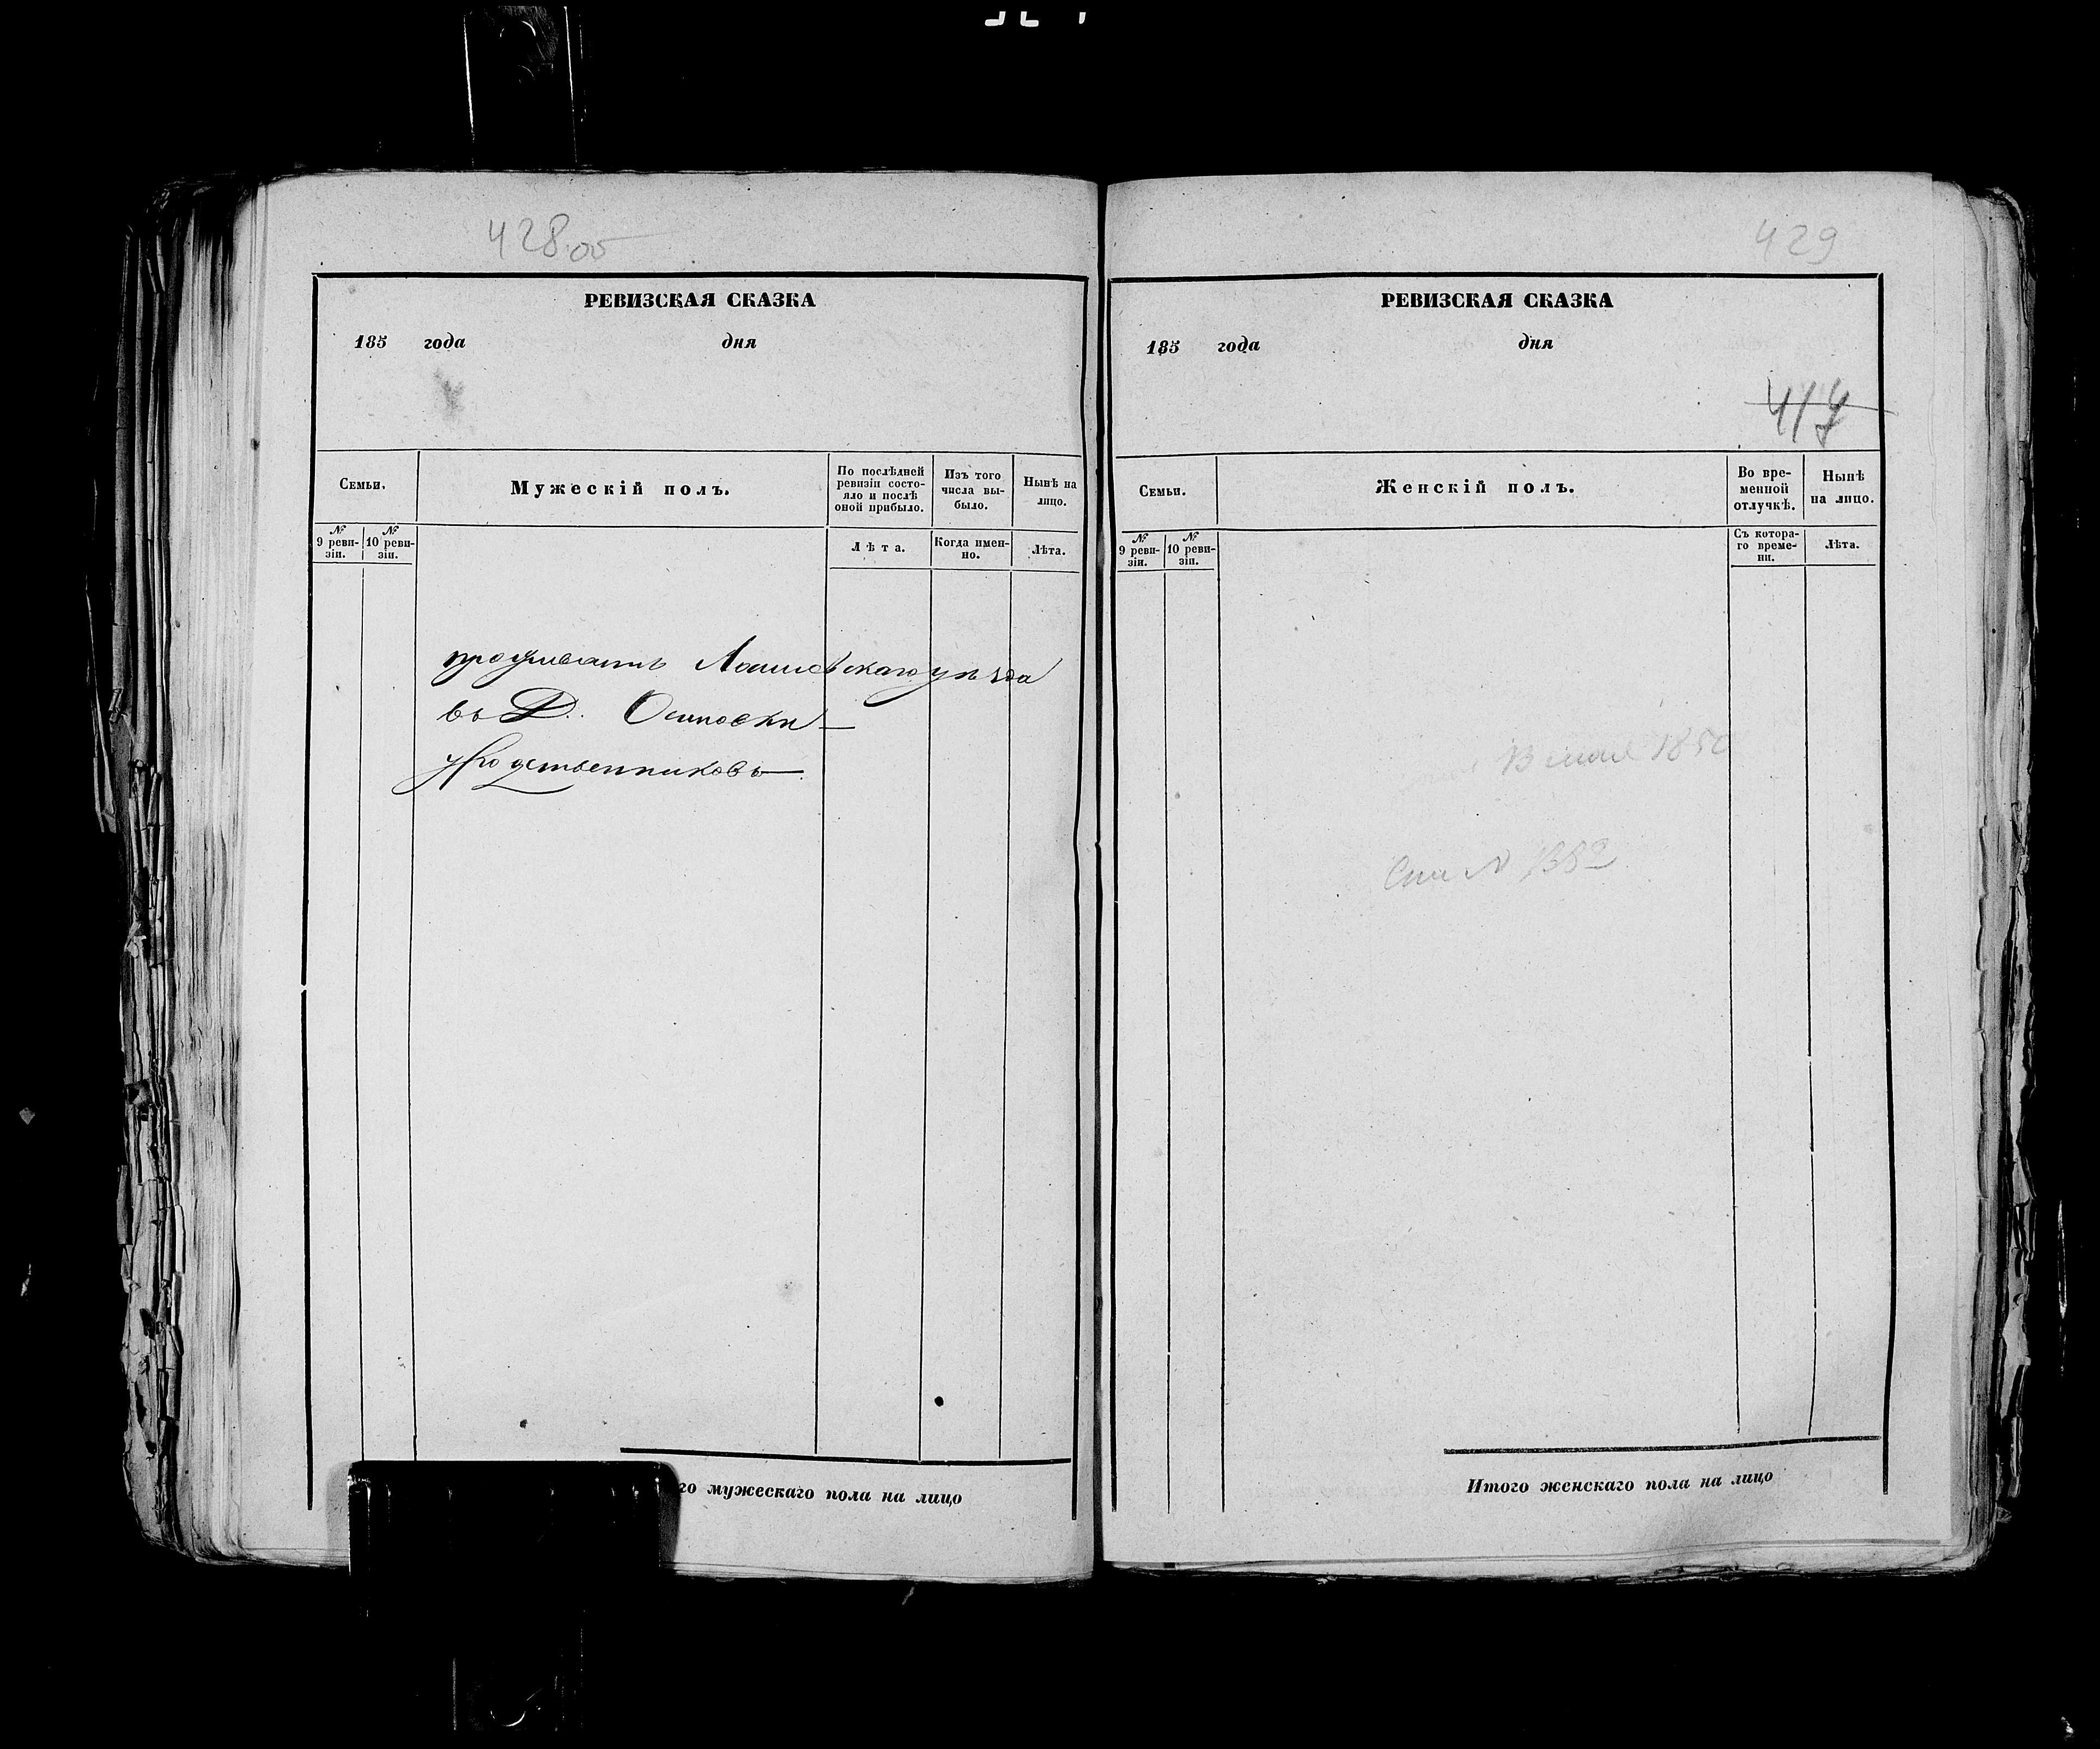 428 об
РЕВИЗСКАЯ СКАЗКА
185 года дня
Семьи.
Мужескій полъ.
По послѣдней ревизіи состояло и послѣ оной прибыло.
Изъ того числа выбыло.
Нынѣ на лицо.
№ 9 ревизіи.
№ 10 ревизіи.
Лѣта.
Когда именно.
Лѣта.
проживаетъ Лаишевскаго уѣзда
въ Д. Осиповки
у родственниковъ
го мужескаго пола на лицо
429
РЕВИЗСКАЯ СКАЗКА
185 года дня
417
Семьи.
Женскій полъ.
Во временной отлучкѣ.
Нынѣ на лицо.
№ 9 ревизіи.
№ 10 ревизіи.
Съ котораго времени.
Лѣта.
мая 1850
Итого женскаго пола на лицо